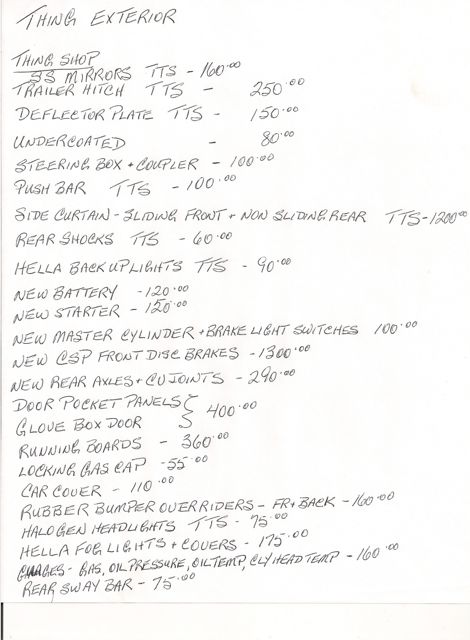 THING EXTERIOR
THING SHOP
SS MIRRORS TTS - 160.00
TRAILER HITCH TTS - 250.00
DEFLECTOR PLATE TTS - 150.00
UNDERCOATED - 80.00
STEERING BOX + COUPLER - 100.00
PUSH BAR TTS - 100.00
SIDE CURTAIN - SLIDING FRONT + NON SLIDING REAR TTS - 1200.00
REAR SHOCKS TTS - 60.00
HELLA BACK UP LIGHTS TTS - 90.00
NEW BATTERY - 120.00
NEW STARTER - 120.00
NEW MASTER CYLINDER + BRAKE LIGHT SWITCHES 100.00
NEW CSP FRONT DISC BRAKES - 1300.00
NEW REAR AXLES + CV JOINTS - 290.00
DOOR POCKET PANELS } 400.00
GLOVE BOX DOOR
RUNNING BOARDS - 360.00
LOCKING GAS CAP - 55.00
CAR COVER - 110.00
RUBBER BUMPER OVERRIDERS - FR + BACK - 160.00
HALOGEN HEADLIGHTS TTS - 75.00
HELLA FOG LIGHTS + COVERS - 175.00
GUAGES - GAS, OIL PRESSURE, OIL TEMP, CLY HEAD TEMP - 160.00
REAR SWAY BAR - 75.00